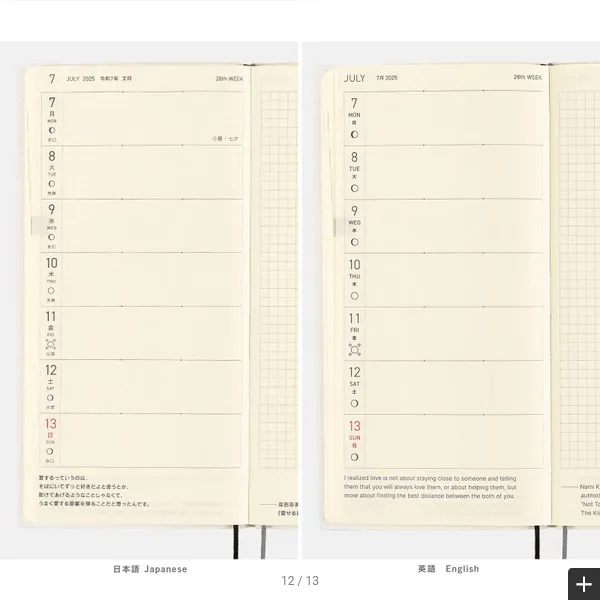 7 JULY 2025 令和7年 文月 28th WEEK
7
月
MON
赤口
小暑・七夕
8
火
TUE
先勝
9
水
WED
友引
10
木
THU
先負
11
金
FRI
仏滅
12
土
SAT
大安
13
日
SUN
赤口
愛するっていうのは、
そばにいてずっと好きだよと言うとか、
助けてあげるようなことじゃなくて、
うまく愛する距離を探ることだと思ったんです。
JULY 7月 2025 28th WEEK
7
MON
月
8
TUE
火
9
WED
水
10
THU
木
11
FRI
金
12
SAT
土
13
SUN
日
I realized love is not about staying close to someone and telling
them that you will always love them, or about helping them, but
more about finding the best distance between the both of you.
Nami K
author
"Not To
The Ki
日本語 Japanese
英語 English
12 / 13